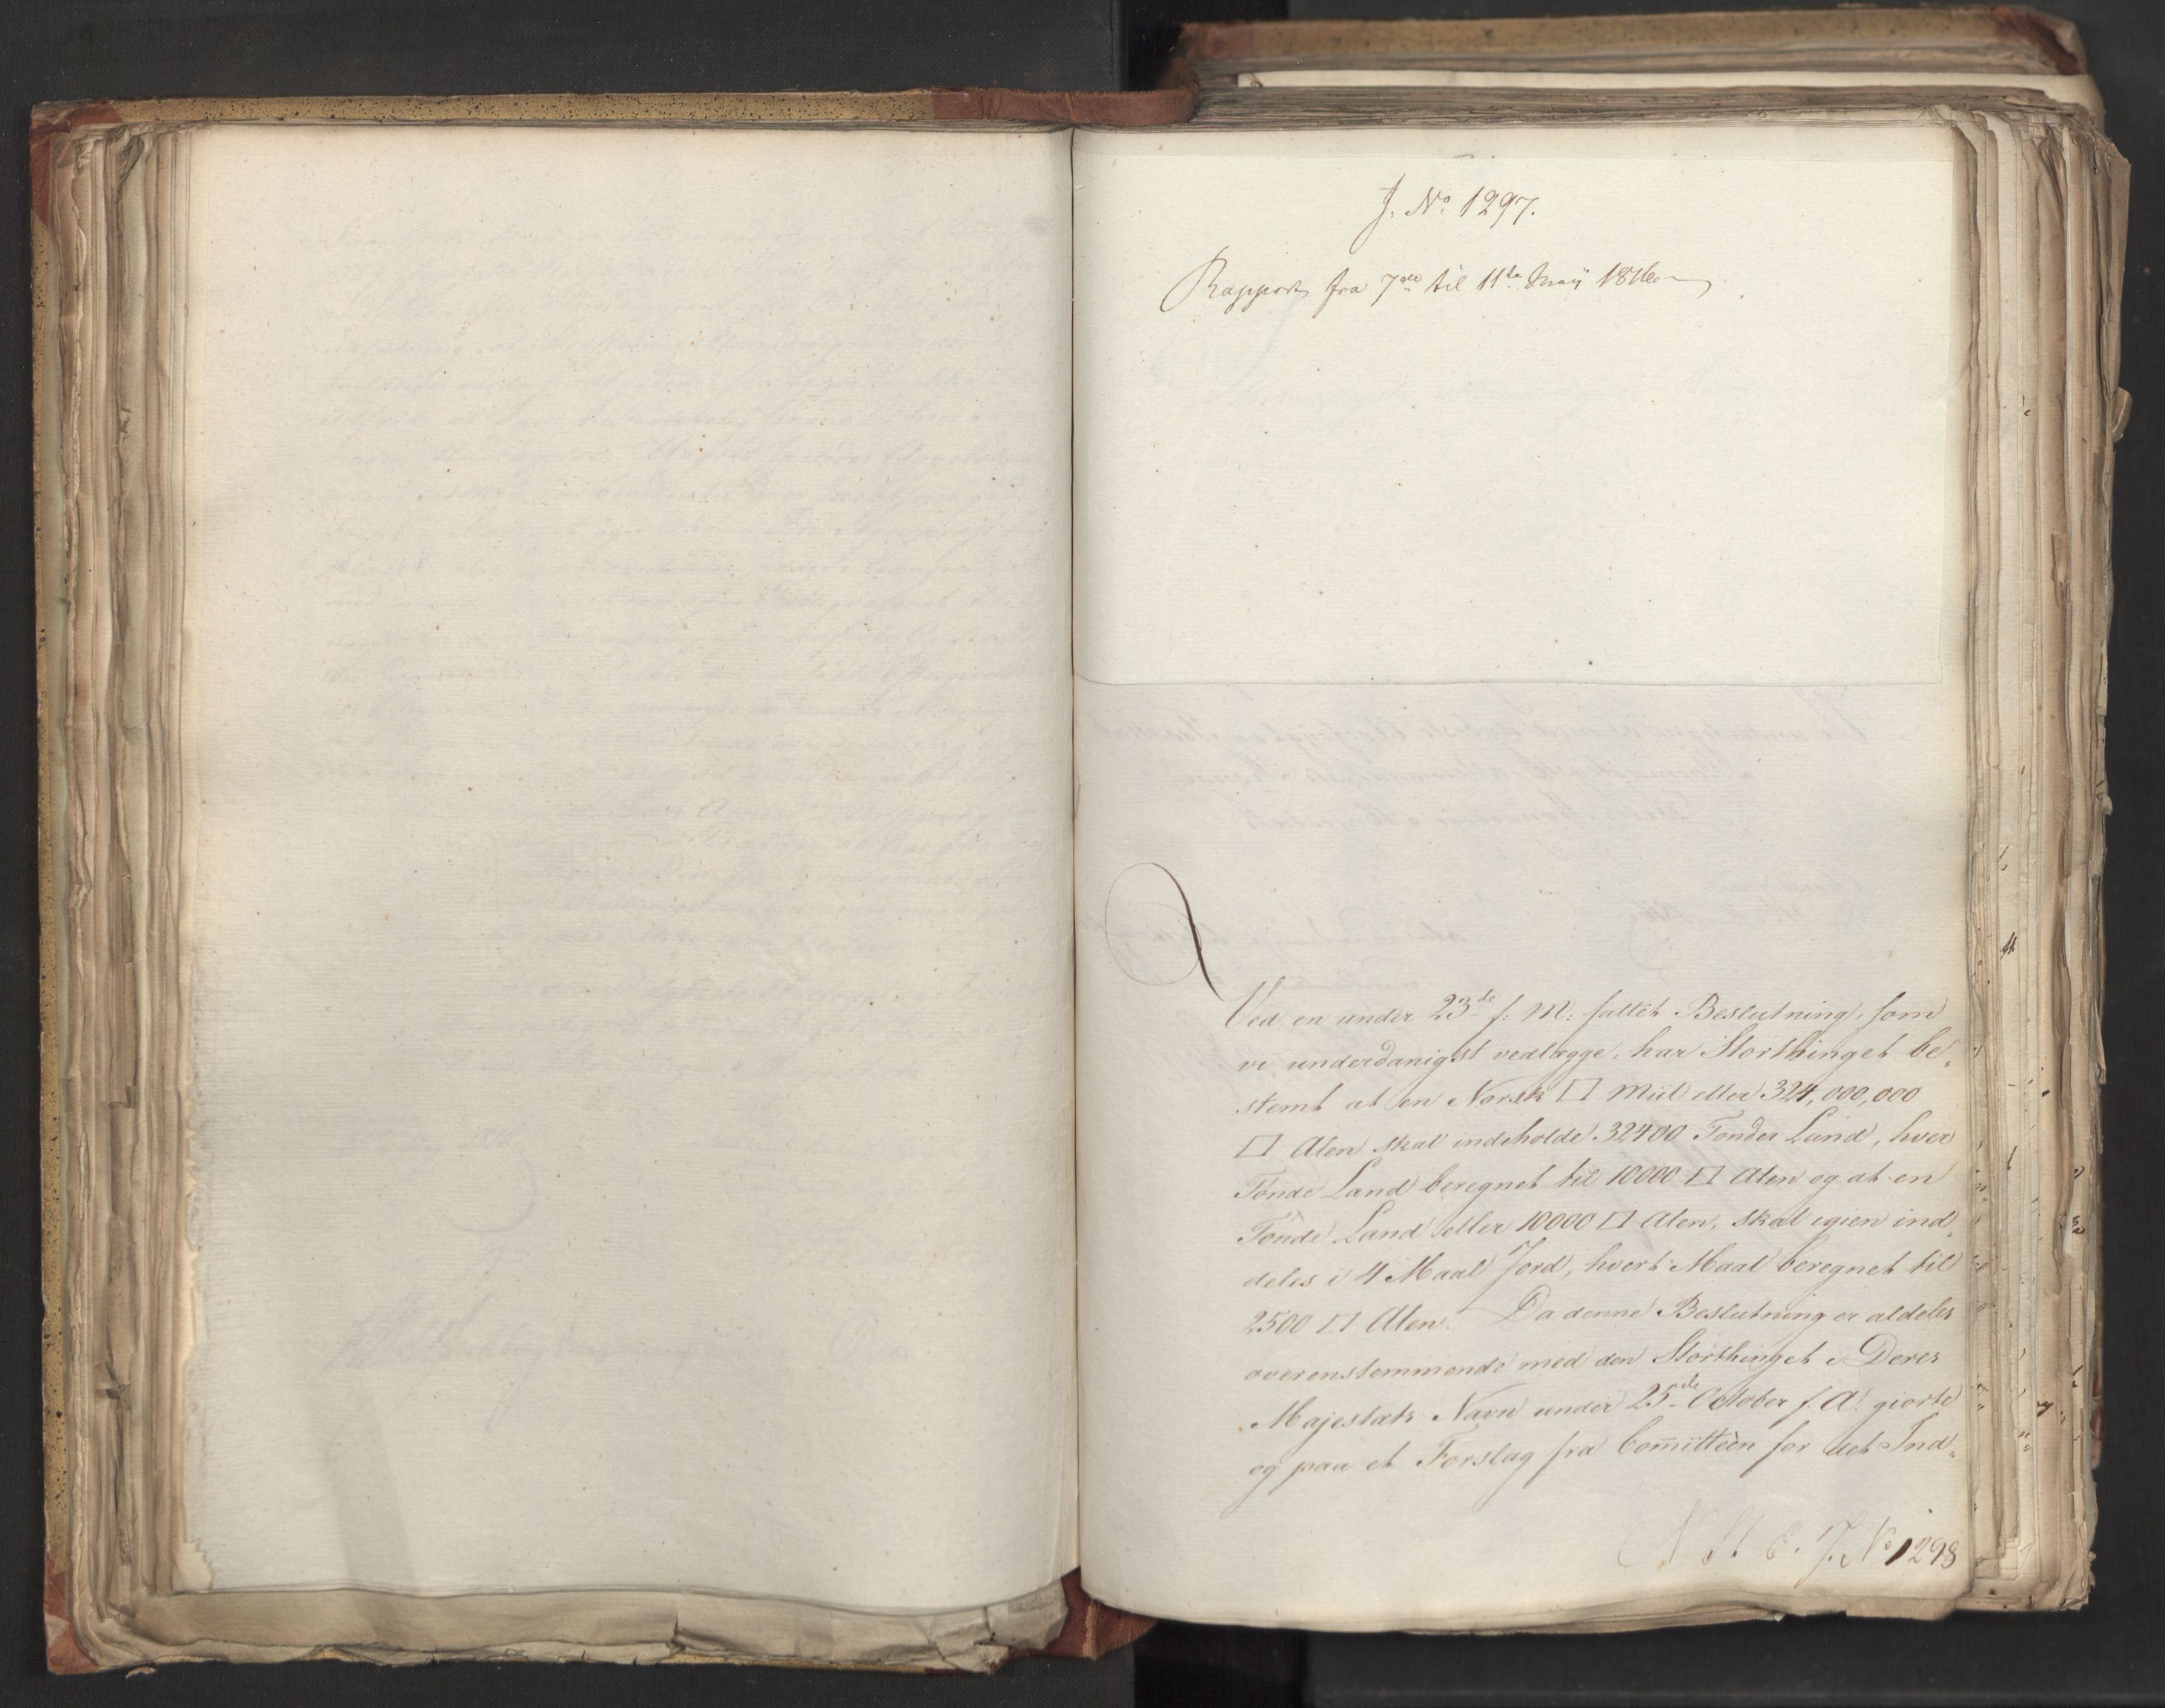 J. No 1297.
Rapport fra 7de til 11te Maij 1816
Ved en under 23de f: M: fattet Beslutning, som
vi underdanigst vedlægge, har Storthinget be„
stemt at en Norsk □ Miil eller 324,000,000
□ Alen skal indeholde 32400 Tønder Land, hver
Tønde Land beregnet til 10000 □ Alen og at en
Tønde Land eller 10000 □ Alen, skal igien ind„
deles i 4 Maal Jord, hvert Maal beregnet til
2500 □ Alen. Da denne Beslutning er aldeles
overenstemmende med den Storthinget i Deres
Majestæts Navn under 25de October f. A. giorte
og paa et Forslag fra Committeèn for det Ind„
N. St. E. J. No 1298